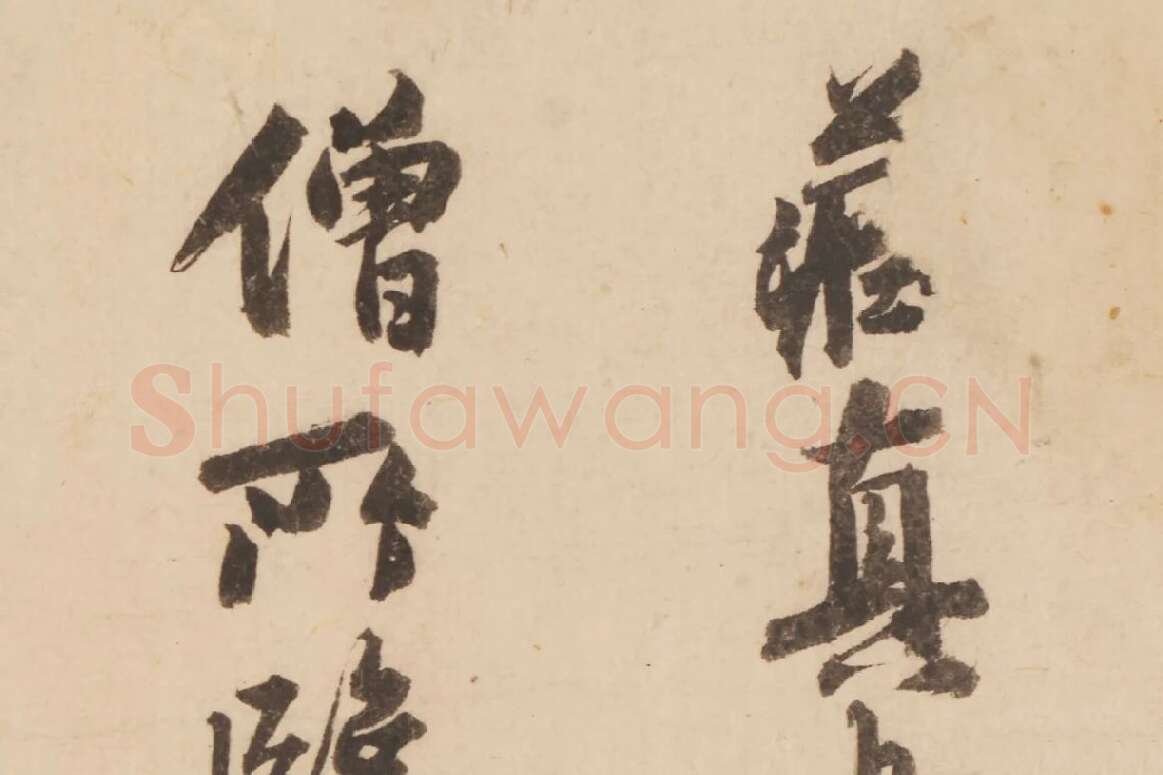 莊真
僧所臨
Shufawang.CN